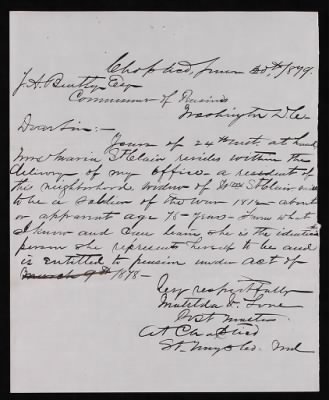 Chaptico, June 30th 1879.
J. A. Bentley Esq
Commissioner of Pensions
Washington D.C.
Dear Sir:-
Yours of 24th inst. at hand
Mrs Maria St Clair resides within the
delivery of my office a resident of
this neighborhood widow of St Clair
to be a Soldier of the war 1812 - about
or apparent age 75 - years - from what
I know and can learn, she is the identical
person she represents herself to be and
is entitled to pension under act of
March 9th 1878 -
Very respectfully
Matilda
Post Master
At Chaptico
St. Marys Co. Md